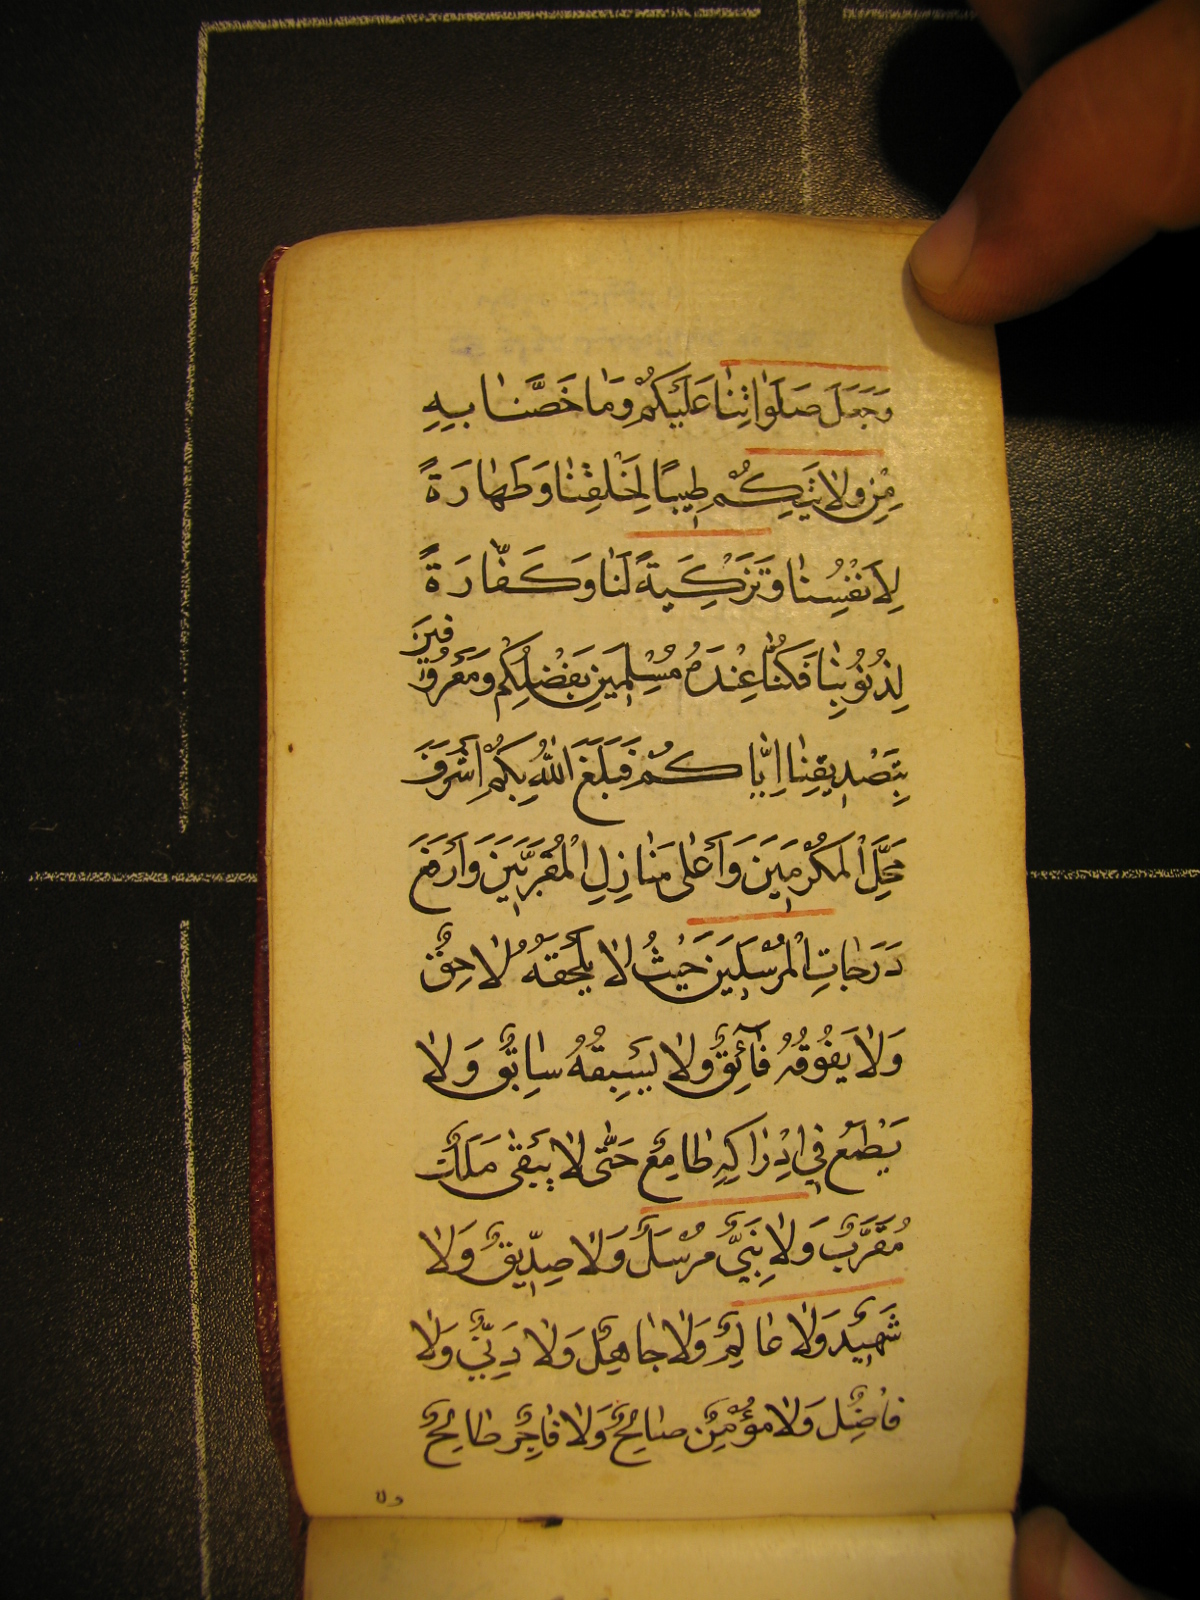 وَجَعَلَ صَلَوَاتِنَا عَلَيْكُمْ وَمَا خَصَّنَا بِهِ
مِنْ وِلَايَتِكُمْ طِيبًا لِخَلْقِنَا وَطَهَارَةً
لِاَنْفُسِنَا وَتَزْكِيَةً لَنَا وَكَفَّارَةً
لِذُنُوبِنَا فَكُنَّا عِنْدَهُ مُسْلِمِينَ بِفَضْلِكُمْ وَمَعْرُوفِينَ
بِتَصْدِيقِنَا اِيَّاكُمْ فَبَلَغَ اللهُ بِكُمْ اَشْرَفَ
مَحَلِّ الْمُكَرَّمِينَ وَاَعْلٰى مَنَازِلِ الْمُقَرَّبِينَ وَاَرْفَعَ
دَرَجَاتِ الْمُرْسَلِينَ حَيْثُ لَا يَلْحَقُهُ لَاحِقٌ
وَلَا يَفُوقُهُ فَآئِقٌ وَلَا يَسْبِقُهُ سَابِقٌ وَلَا
يَطْمَعُ فِي اِدْرَاكِهِ طَامِعٌ حَتّٰى لَا يَبْقٰى مَلَكٌ
مُقَرَّبٌ وَلَا نَبِيٌّ مُرْسَلٌ وَلَا صِدِّيقٌ وَلَا
شَهِيدٌ وَلَا عَالِمٌ وَلَا جَاهِلٌ وَلَا دَنِيٌّ وَلَا
فَاضِلٌ وَلَا مُؤْمِنٌ صَالِحٌ وَلَا فَاجِرٌ طَالِحٌ
ولا